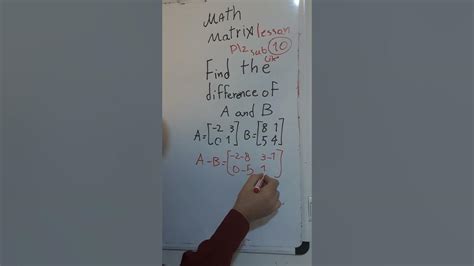 Math
Matrix lesson
Plz sub 10
Like
Find the
difference of
A and B
A=[-2 3 B=[8 1
0 1] 5 4]
A-B=[-2-8 3-1
0-5 1 ]